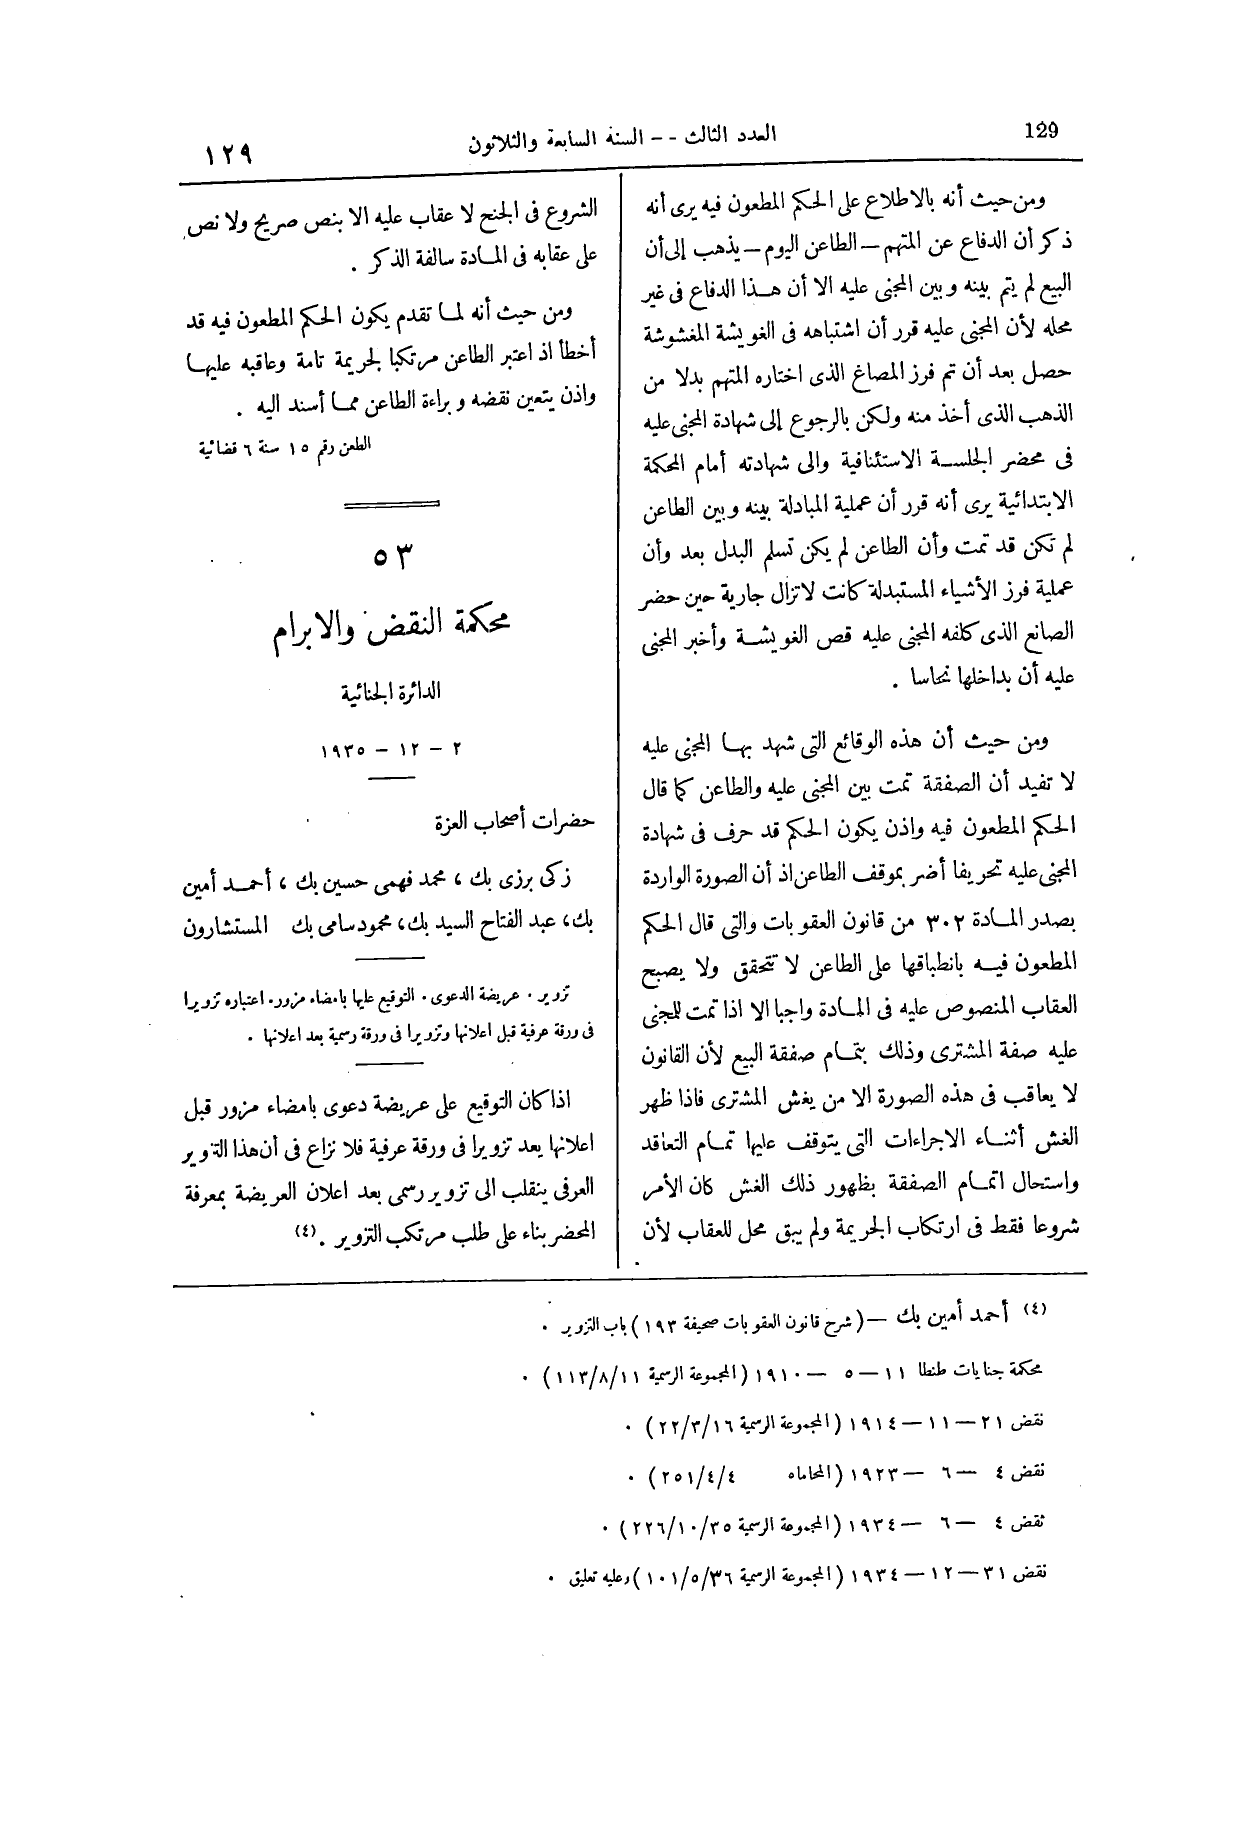 129
العدد الثالث -- السنة السابعة والثلاثون
١٢٩
ومن حيث أنه بالاطلاع على الحكم المطعون فيه يرى أنه
ذكر أن الدفاع عن المتهم — الطاعن اليوم — يذهب إلى أن
البيع لم يتم بينه وبين المجنى عليه الا أن هذا الدفاع فى غير
محله لأن المجنى عليه قرر أن اشتباهه فى الغويشة المغشوشة
حصل بعد أن تم فرز المصاغ الذى اختاره المتهم بدلا من
الذهب الذى أخذ منه ولكن بالرجوع إلى شهادة المجنى عليه
فى محضر الجلسة الاستئنافية والى شهادته أمام المحكمة
الابتدائية يرى أنه قرر أن عملية المبادلة بينه وبين الطاعن
لم تكن قد تمت وأن الطاعن لم يكن تسلم البدل بعد وأن
عملية فرز الأشياء المستبدلة كانت لاتزال جارية حين حضر
الصانع الذى كلفه المجنى عليه قص الغويشة وأخبر المجنى
عليه أن بداخلها نحاسا .
ومن حيث أن هذه الوقائع التى شهد بها المجنى عليه
لا تفيد أن الصفقة تمت بين المجنى عليه والطاعن كما قال
الحكم المطعون فيه واذن يكون الحكم قد حرف فى شهادة
المجنى عليه تحريفا أضر بموقف الطاعن اذ أن الصورة الواردة
بصدر المادة ٣٠٢ من قانون العقوبات والتى قال الحكم
المطعون فيه بانطباقها على الطاعن لا تتحقق ولا يصبح
العقاب المنصوص عليه فى المادة واجبا الا اذا تمت للمجنى
عليه صفة المشترى وذلك بتمام صفقة البيع لأن القانون
لا يعاقب فى هذه الصورة الا من يغش المشترى فاذا ظهر
الغش أثناء الاجراءات التى يتوقف عليها تمام التعاقد
واستحال اتمام الصفقة بظهور ذلك الغش كان الأمر
شروعا فقط فى ارتكاب الجريمة ولم يبق محل للعقاب لأن
الشروع فى الجنح لا عقاب عليه الا بنص صريح ولا نص
على عقابه فى المادة سالفة الذكر .
ومن حيث أنه لما تقدم يكون الحكم المطعون فيه قد
أخطأ اذ اعتبر الطاعن مرتكبا لجريمة تامة وعاقبه عليها
واذن يتعين نقضه وبراءة الطاعن مما أسند اليه .
الطعن رقم ١٥ سنة ٦ قضائية
٥٣
محكمة النقض والابرام
الدائرة الجنائية
٢ - ١٢ - ١٩٣٥
حضرات أصحاب العزة
زكى برزى بك ، محمد فهمى حسين بك ، أحمد أمين
بك، عبد الفتاح السيد بك، محمود سامى بك المستشارون
تزوير . عريضة الدعوى . التوقيع عليها بامضاء مزور. اعتباره تزويرا
فى ورقة عرفية قبل اعلانها وتزويرا فى ورقة رسمية بعد اعلانها .
اذا كان التوقيع على عريضة دعوى بامضاء مزور قبل
اعلانها يعد تزويرا فى ورقة عرفية فلا نزاع فى أن هذا التزوير
العرفى ينقلب الى تزوير رسمى بعد اعلان العريضة بمعرفة
المحضر بناء على طلب مرتكب التزوير . (٤)
(٤) أحمد أمين بك — (شرح قانون العقوبات صحيفة ١٩٣) باب التزوير .
محكمة جنايات طنطا ١١ — ٥ — ١٩١٠ (المجموعة الرسمية ١١٣/٨/١١) .
نقض ٢١ — ١١ — ١٩١٤ (المجموعة الرسمية ٢٢/٣/١٦) .
نقض ٤ — ٦ — ١٩٢٣ (المحاماه ٢٥١/٤/٤) .
نقض ٤ — ٦ — ١٩٣٤ (المجموعة الرسمية ٢٢٦/١٠/٣٥) .
نقض ٣١ — ١٢ — ١٩٣٤ (المجموعة الرسمية ١٠١/٥/٣٦) وعليه تعليق .